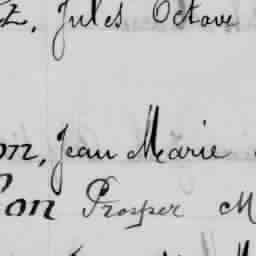 z, Jules Octave
on, Jean Marie
on Prosper M